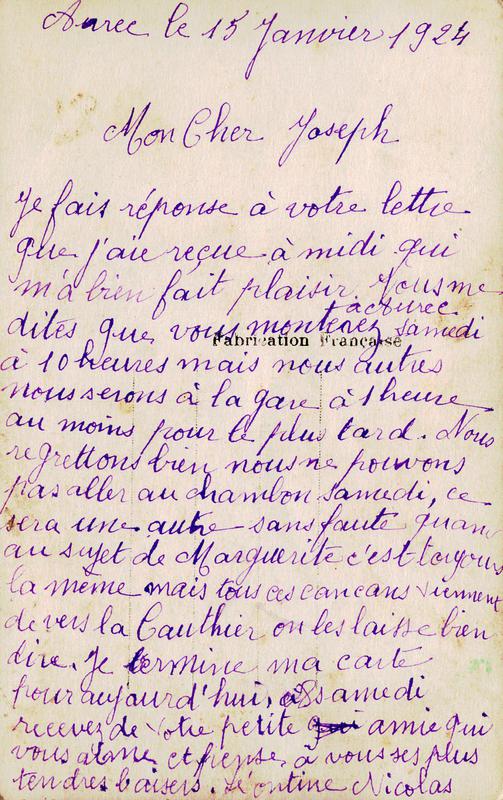 Aurec le 15 Janvier 1924
Mon Cher Joseph
Je fais réponse à votre lettre
que j'aie reçue à midi qui
m'a bien fait plaisir. Vous me
à Aurec
dites que vous monterez samedi
Fabrication Française
à 10 heures mais nous autres
nous serons à la gare à 1 heure
au moins pour le plus tard. Nous
regrettons bien nous ne pouvons
pas aller au chambon samedi, ce
sera une autre sans faute quant
au sujet de Marguerite c'est toujours
la même mais tous ces cancans viennent
de vers la Gauthier on les laisse bien
dire. Je termine ma carte
pour aujourd'hui, à Samedi
recevez de votre petite qui amie qui
vous aime et pense à vous ses plus
tendres baisers. Léontine Nicolas